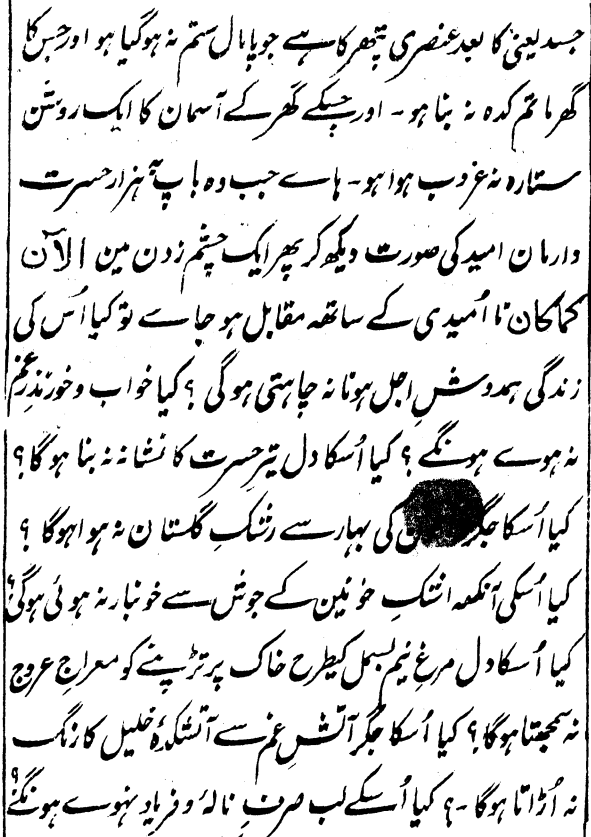 جسد یعنی کا بعد عنصری پتھر کا ہے جو پامال ستم نہ ہوگیا ہو اور جس کا
گھر ماتم کدہ نہ بنا ہو ۔ اور جسکے گھر کے آسمان کا ایک روشن
ستارہ نہ غروب ہوا ہو ۔ ہاے جب وہ باپ بہ ہزار حسرت
وارمان امید کی صورت دیکھ کر پھر ایک چشم زدن مین الآن
کماکان نا اُمیدی کے ساتھ مقابل ہو جاے تو کیا اُس کی
زندگی ہمدوشِ اجل ہونا نہ چاہتی ہوگی ؟ کیا خواب و خور نذرِ غم
نہ ہوے ہونگے ؟ کیا اُسکا دل تیرِ حسرت کا نشانہ نہ بنا ہوگا ؟
کیا اُسکا جگر کی بہار سے رشکِ گلستان نہ ہوا ہوگا ؟
کیا اُسکی آنکھ اشکِ خونین کے جوش سے خونبار نہ ہوئی ہوگی ؟
کیا اُسکا دل مرغِ نیم بسمل کیطرح خاک پر تڑپنے کو معراجِ عروج
نہ سمجھتا ہوگا ؟ کیا اُسکا جگر آتشِ غم سے آتشکدۂ خلیل کا رنگ
نہ اُڑاتا ہوگا ۔ ؟ کیا اُسکے لب صرفِ نالۂ و فریاد نہوے ہونگے ؟